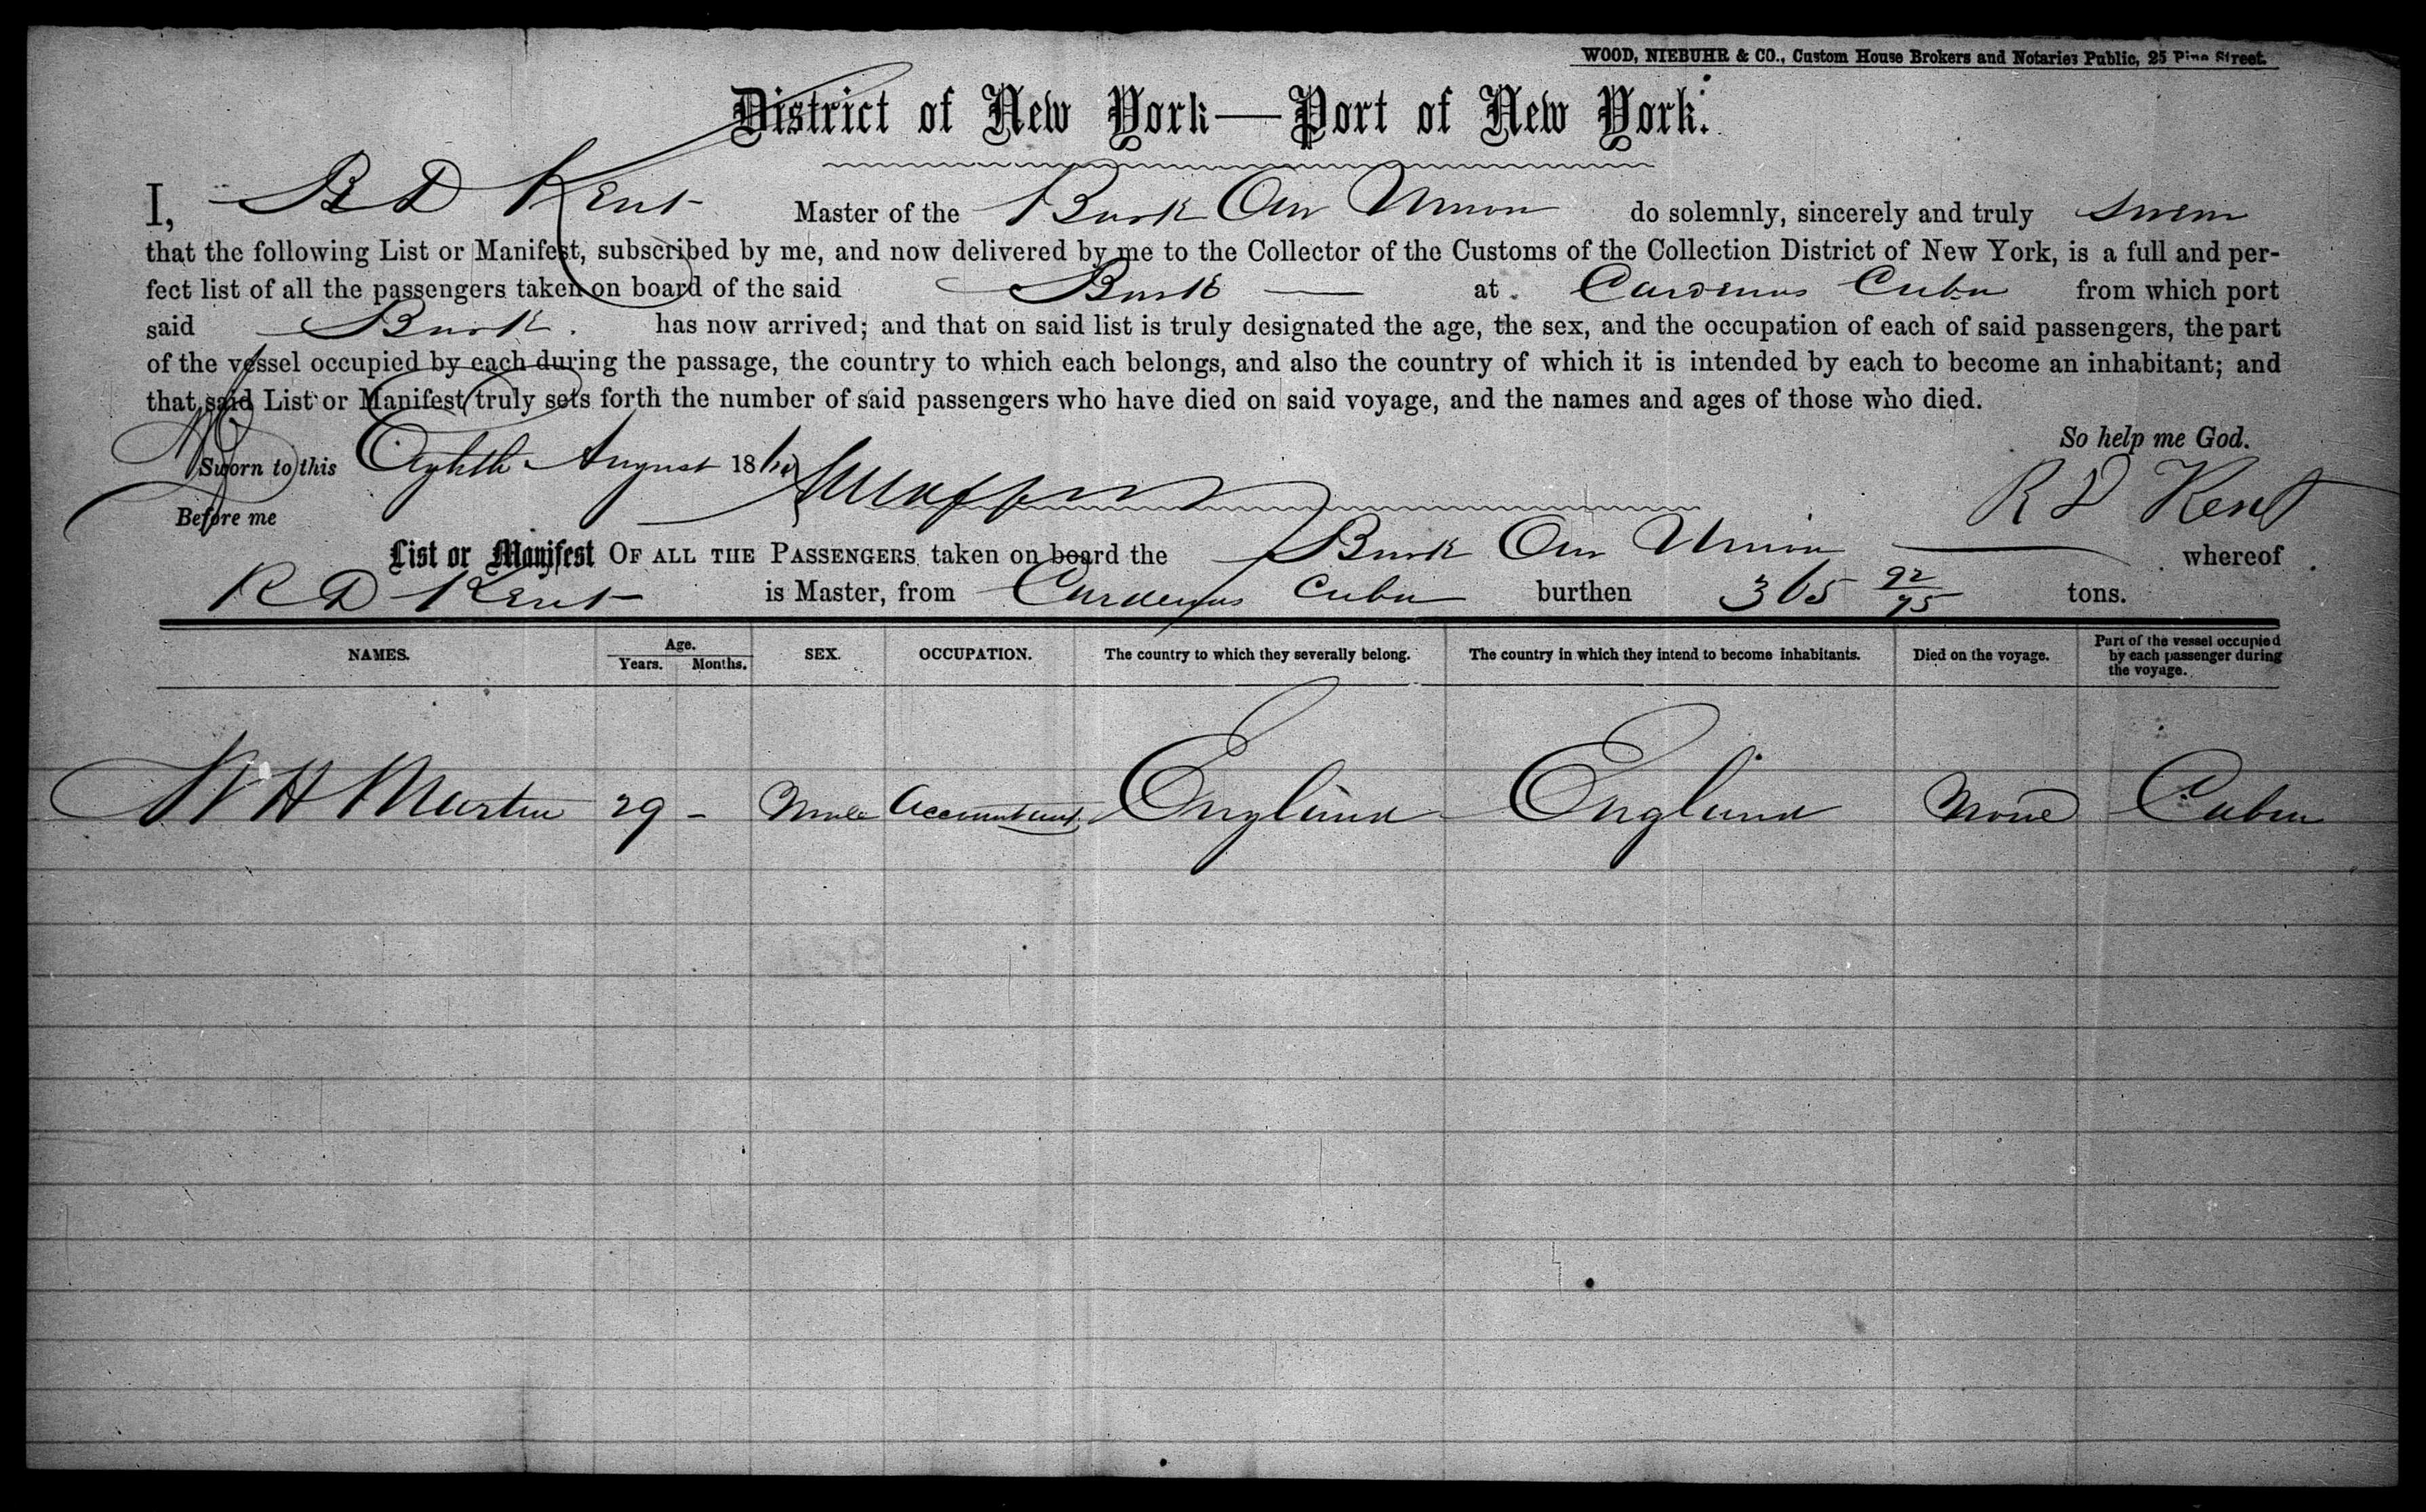 WOOD, NIEBUHR & CO., Custom House Brokers and Notaries Public, 25 Pine Street.
District of New York—Port of New York.
I, R D Kent Master of the Bark Our Union do solemnly, sincerely and truly swear
that the following List or Manifest, subscribed by me, and now delivered by me to the Collector of the Customs of the Collection District of New York, is a full and per-
fect list of all the passengers taken on board of the said Bark at Cardenas Cuba from which port
said Bark has now arrived; and that on said list is truly designated the age, the sex, and the occupation of each of said passengers, the part
of the vessel occupied by each during the passage, the country to which each belongs, and also the country of which it is intended by each to become an inhabitant; and
that said List or Manifest truly sets forth the number of said passengers who have died on said voyage, and the names and ages of those who died.
So help me God.
Sworn to this Eighth August 186
R D Kent
Before me
List or Manifest OF ALL THE PASSENGERS taken on board the Bark Our Union whereof
R D Kent is Master, from Cardenas Cuba burthen 365 92/95 tons.
NAMES. Age. Years. Months. SEX. OCCUPATION. The country to which they severally belong. The country in which they intend to become inhabitants. Died on the voyage. Part of the vessel occupied by each passenger during the voyage.
W H Martin 29 - Male Accountant England England None Cabin